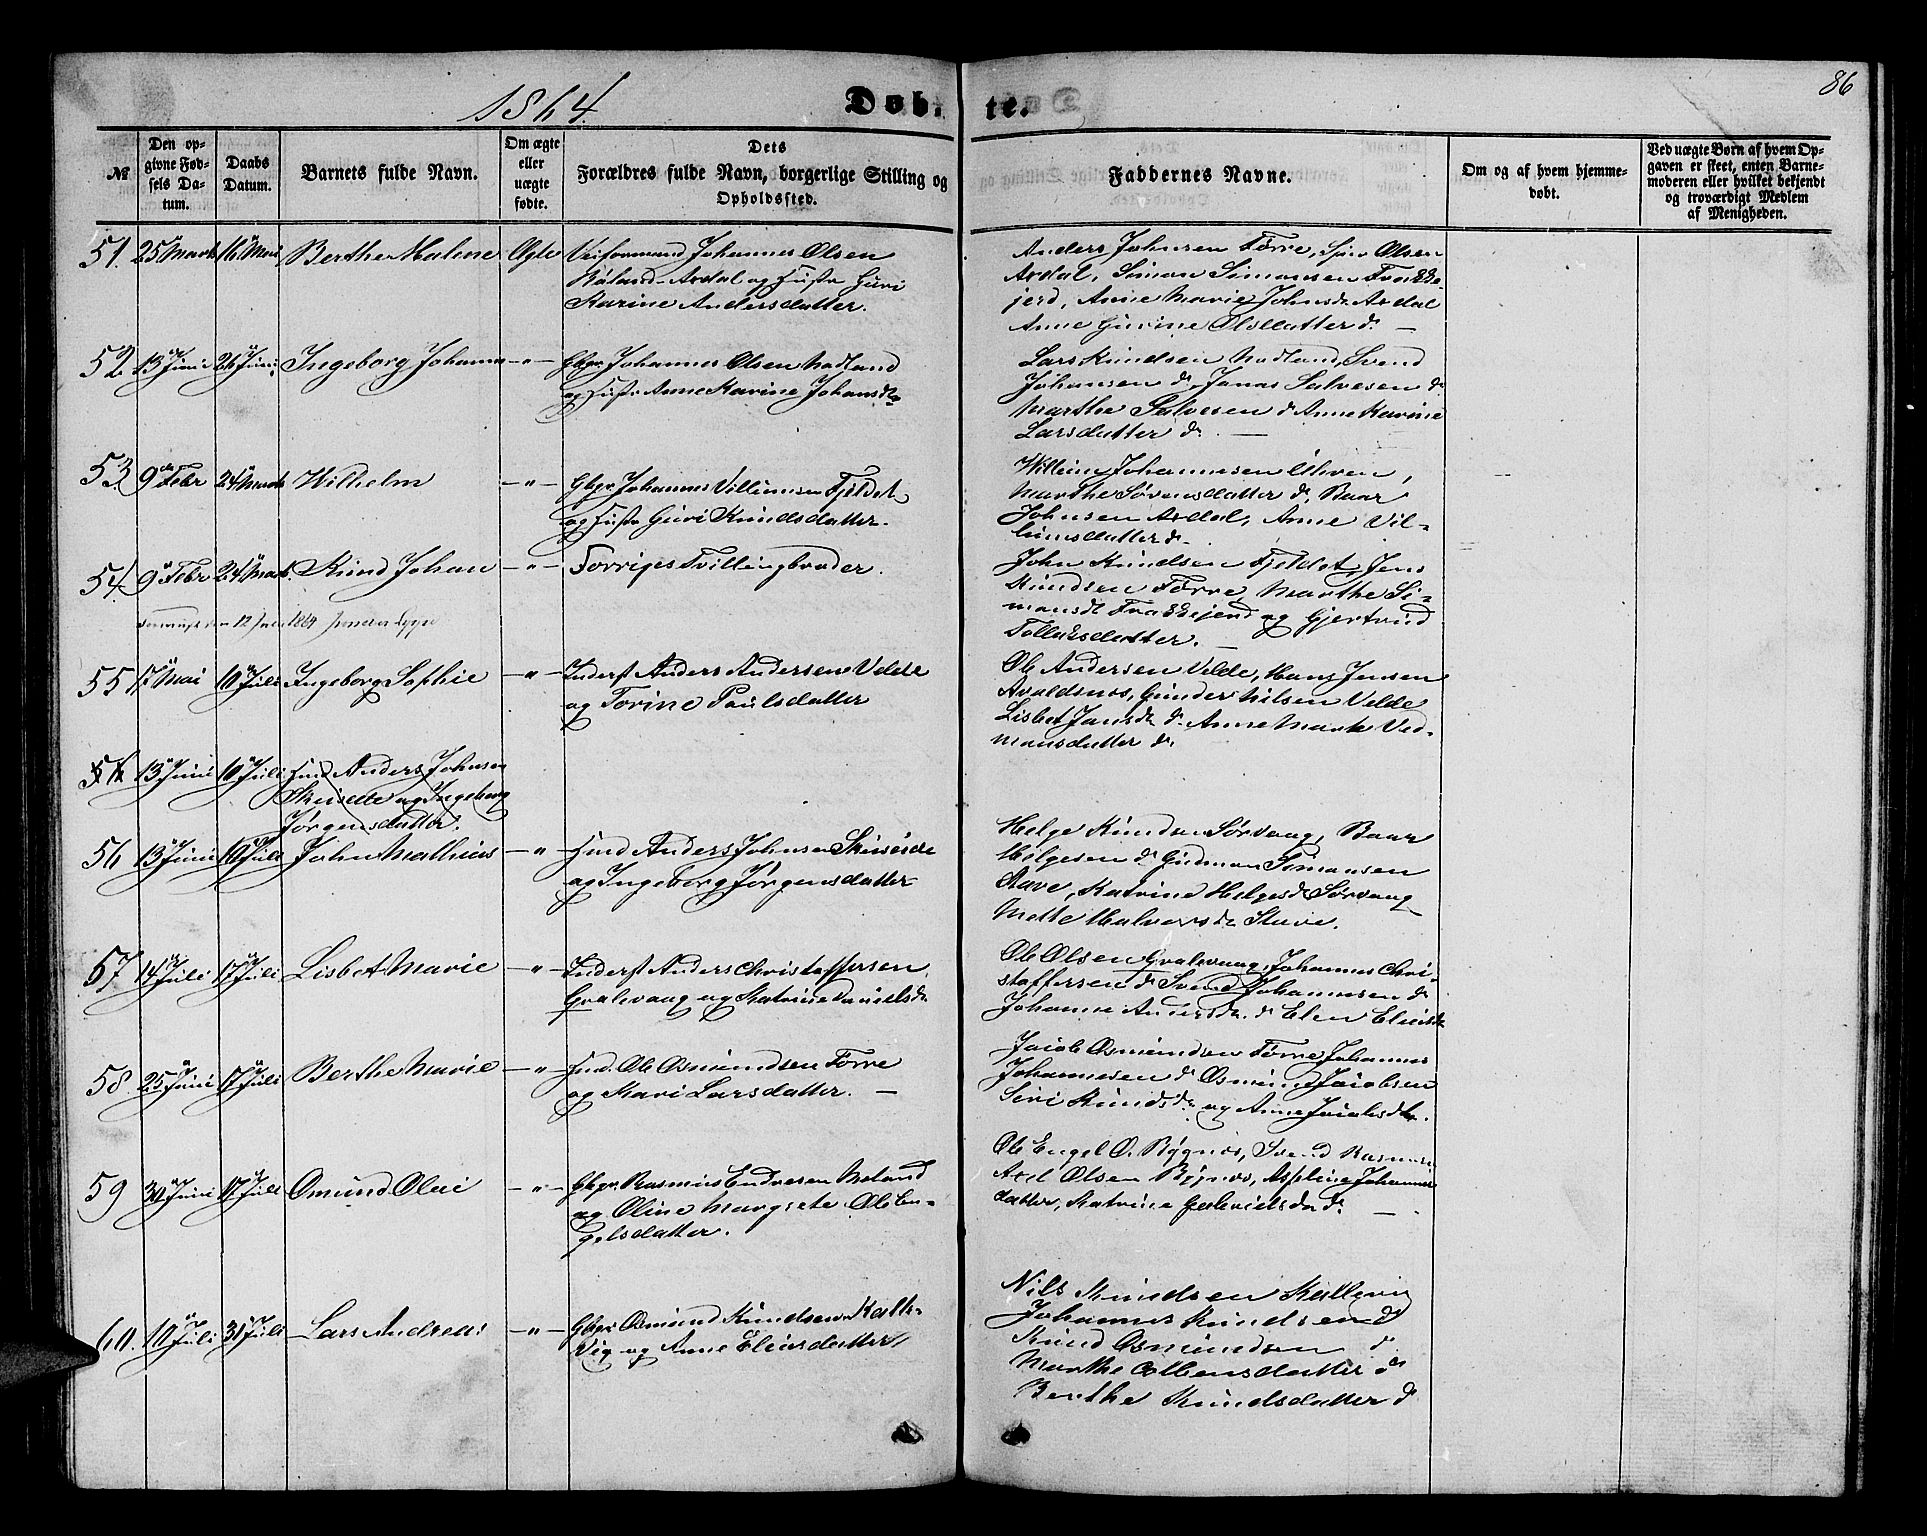 1864.
Døb- te.
86
№
Den op-
givne Fød-
sels Da-
tum.
Daabs
Datum.
Barnets fulde Navn.
Om ægte
eller
uægte
fødte.
Dets
Forældres fulde Navn, borgerlige Stilling og
Opholdssted.
Faddernes Navne.
Om og af hvem hjemme-
døbt.
Ved uægte Børn af hvem Op-
gaven er skeet, enten Barne-
moderen eller hvilket bekjendt
og troværdigt Medlem
af Menigheden.
51. Berthe Malene Ægte Johannes Olsen
Ardal og Hustr Guri
Karine Andersdatter.
Anders Johnsen Førre, Olsen
Ardal, Simon Simonsen
Anne Marie Johnsdr Ardal
Anne Gurine Olsdatter do —
52. 13 Juni 26 Juni Ingeborg Johanna —"— Gbr. Johannes Olsen Nadland
og Hustr Anne Karine Johansdr
Lars Knudsen Nadland, Svend
Johansen do, Jonas Salvesen do
Marthe Salvesen do Anne Karine
Larsdatter do. —
53. 9 Febr 24 Marts Wilhelm —"— Gbr. Johannes Villumsen Fjeldet
og Hustr Guri Knudsdatter.
Johannesen
Marthe Sørensdatter do, Baar
Johnsen Ardal, Anne Vil-
lumsdatter do
54. 9 Febr 24 Marts. Knud Johan —"— Forriges Tvillingbroder.
12 1864
John Knudsen Fjeldet, Jens
Knudsen Førre, Marthe Si-
monsdt og Gjertrud
Tollaksdatter. —
55 17 Mai 10 Juli Ingeborg Sophie —"— Inderst Anders Andersen Velde
og Torine Paulsdatter
Ole Andersen Velde, Hans Jensen
Avaldsnos, Gunder Nilsen Velde
Lisbet Jansdr do. Anne Marte Ved-
mansdatter do.
13 Juni 10 Juli Hmd Anders Johnsen
og Ingeborg
Jørgensdatter.
56 13 Juni 10 Juli John Mathias —"— Hmd Anders Johnsen
og Ingeborg Jørgensdatter
Helge Knudsen Sørvaag, Baar
Helgesen do Gudman Simonsen
Katrine Helgesdr Sørvaag
Mette Halvorsdr
57 14 Juli 17 Juli Lisbet Marie —"— Inderst Anders Christoffersen
Gralevaag og Katrine Danielsdr
Ole Olsen Gralevaag, Johannes Chri-
stoffersen do Svend Johannesen do
Johanne Andersdr. do Elen
58. 25 Juni 17 Juli Berthe Marie —"— Hmd. Ole Osmundsen Førre
og Kari Larsdatter. —
Jacob Osmundsen Førre, Johannes
Johannesen do Osmund Jacobsen
Siri Knudsdr og Anne Jacobsdtr.
59 30 Juni 17 Juli Omund Olai —"— Gbr. Rasmus Endresen Meland
og Oline Margrete Ole En-
gelsdatter.
Ole Engel O. Bøgnos, Svend
Axel Olsen Bøgnos, Johannes-
datter, Katrine Gabrielsdr do. —
60. 10 Juli 31 Juli Lars Andreas —"— Gbr Osmund Knudsen Kalle-
vig og Anne Eliasdatter
Nils Knudsen Kallevig
Johannes Knudsen do
Knud Osmundsen do
Marthe do
Berthe Knudsdatter do